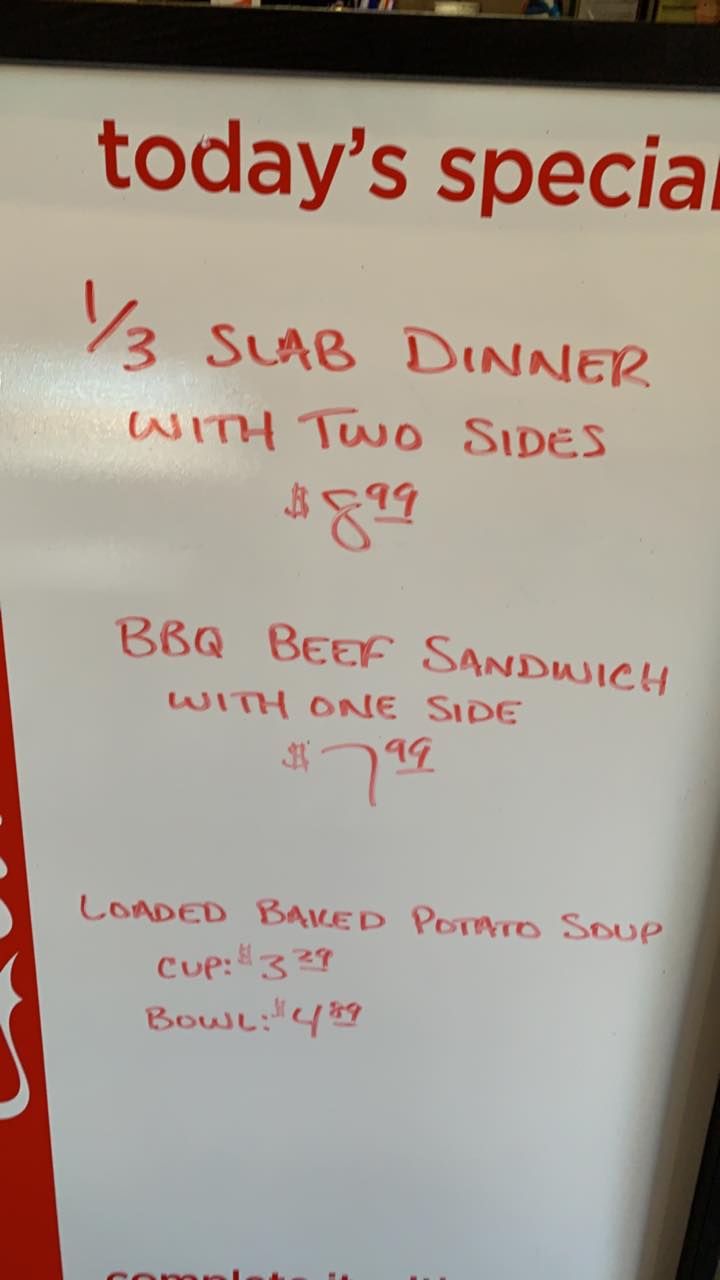 today's special
1/3 SLAB DINNER
WITH TWO SIDES
$8.99
BBQ BEEF SANDWICH
WITH ONE SIDE
$7.99
LOADED BAKED POTATO SOUP
CUP: $3.29
BOWL: $4.89